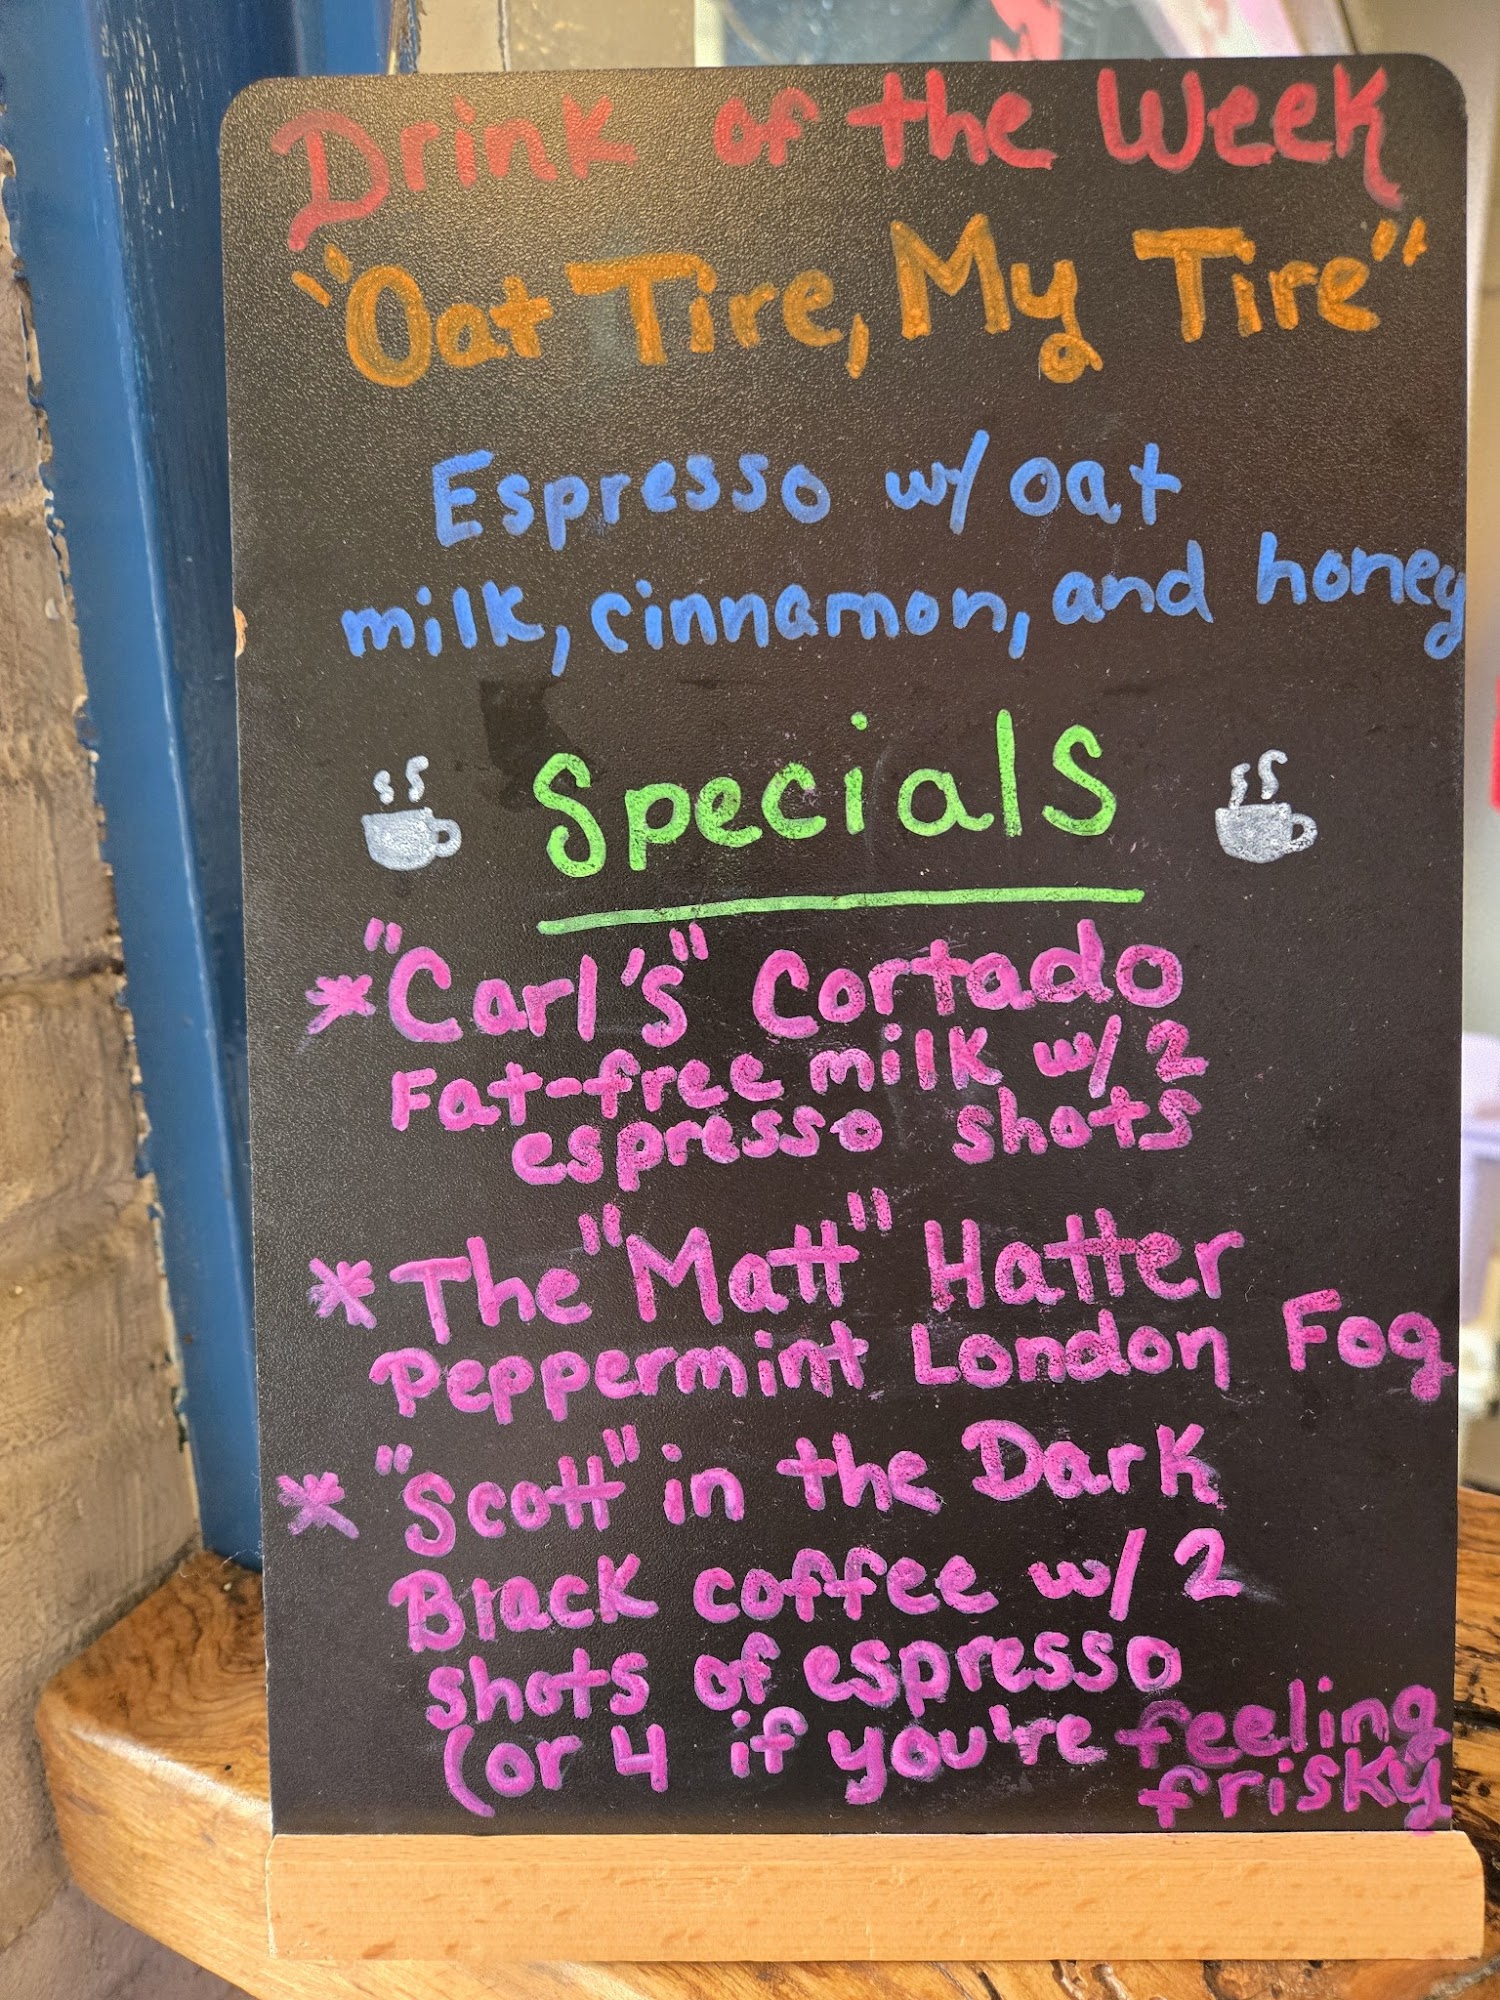 Drink of the Week
"Oat Tire, My Tire"
Espresso w/ oat
milk, cinnamon, and honey
Specials
* "Carl's" Cortado
Fat-free milk w/ 2
espresso shots
* The "Matt" Hatter
Peppermint London Fog
* "Scott" in the Dark
Black coffee w/ 2
shots of espresso
(or 4 if you're feeling
frisky